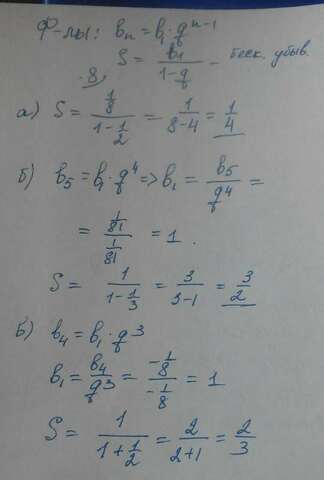 Ф-лы: bₙ = b₁ · qⁿ⁻¹
S = b₁/(1-q) - беск. убыв.
8.
а) S = (1/8)/(1 - 1/2) = 1/(8-4) = 1/4
Б) b₅ = b₁ · q⁴ => b₁ = b₅/q⁴ =
= (1/81)/(1/81) = 1.
S = 1/(1 - 1/3) = 3/(3-1) = 3/2
Б) b₄ = b₁ · q³
b₁ = b₄/q³ = (-1/8)/(-1/8) = 1
S = 1/(1 + 1/2) = 2/(2+1) = 2/3